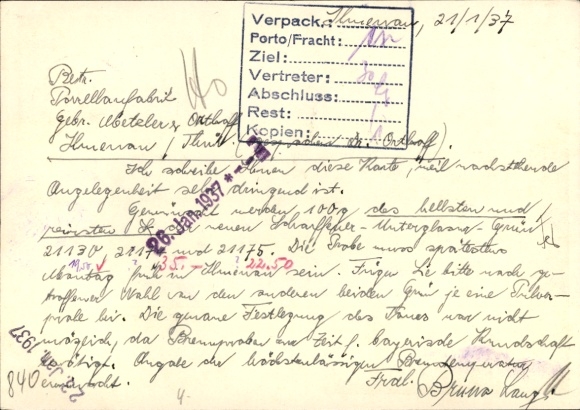 Ilmenau, 21/1/37
Verpack.:
Porto/Fracht:
Ziel:
Vertreter:
Abschluss:
Rest:
Kopien:
Betr.
Porzellanfabrik
Gebr. Metzler & Ortloff
Ilmenau / Thür. (Ortloff)
Ich schreibe Ihnen diese Karte, weil nachstehende
Angelegenheit sehr dringend ist.
Gewünscht werden 100g des hellsten und
neuen Scharffeuer-Unterglasur-Grün
21130 und 21175. Die Probe muss spätestens
19,50 35.- 22.50
Montag früh in Ilmenau sein. Fügen Sie bitte nach ge-
troffener Wahl von den anderen beiden Grün je eine Pulver-
probe bei. Die genaue Festlegung des Tones war nicht
möglich, da Brennproben zur Zeit f. bayerische Kundschaft
benötigt. Angabe der höchstzulässigen
erwünscht. Frdl.
26. Jan. 1937
22. Jan. 1937
840